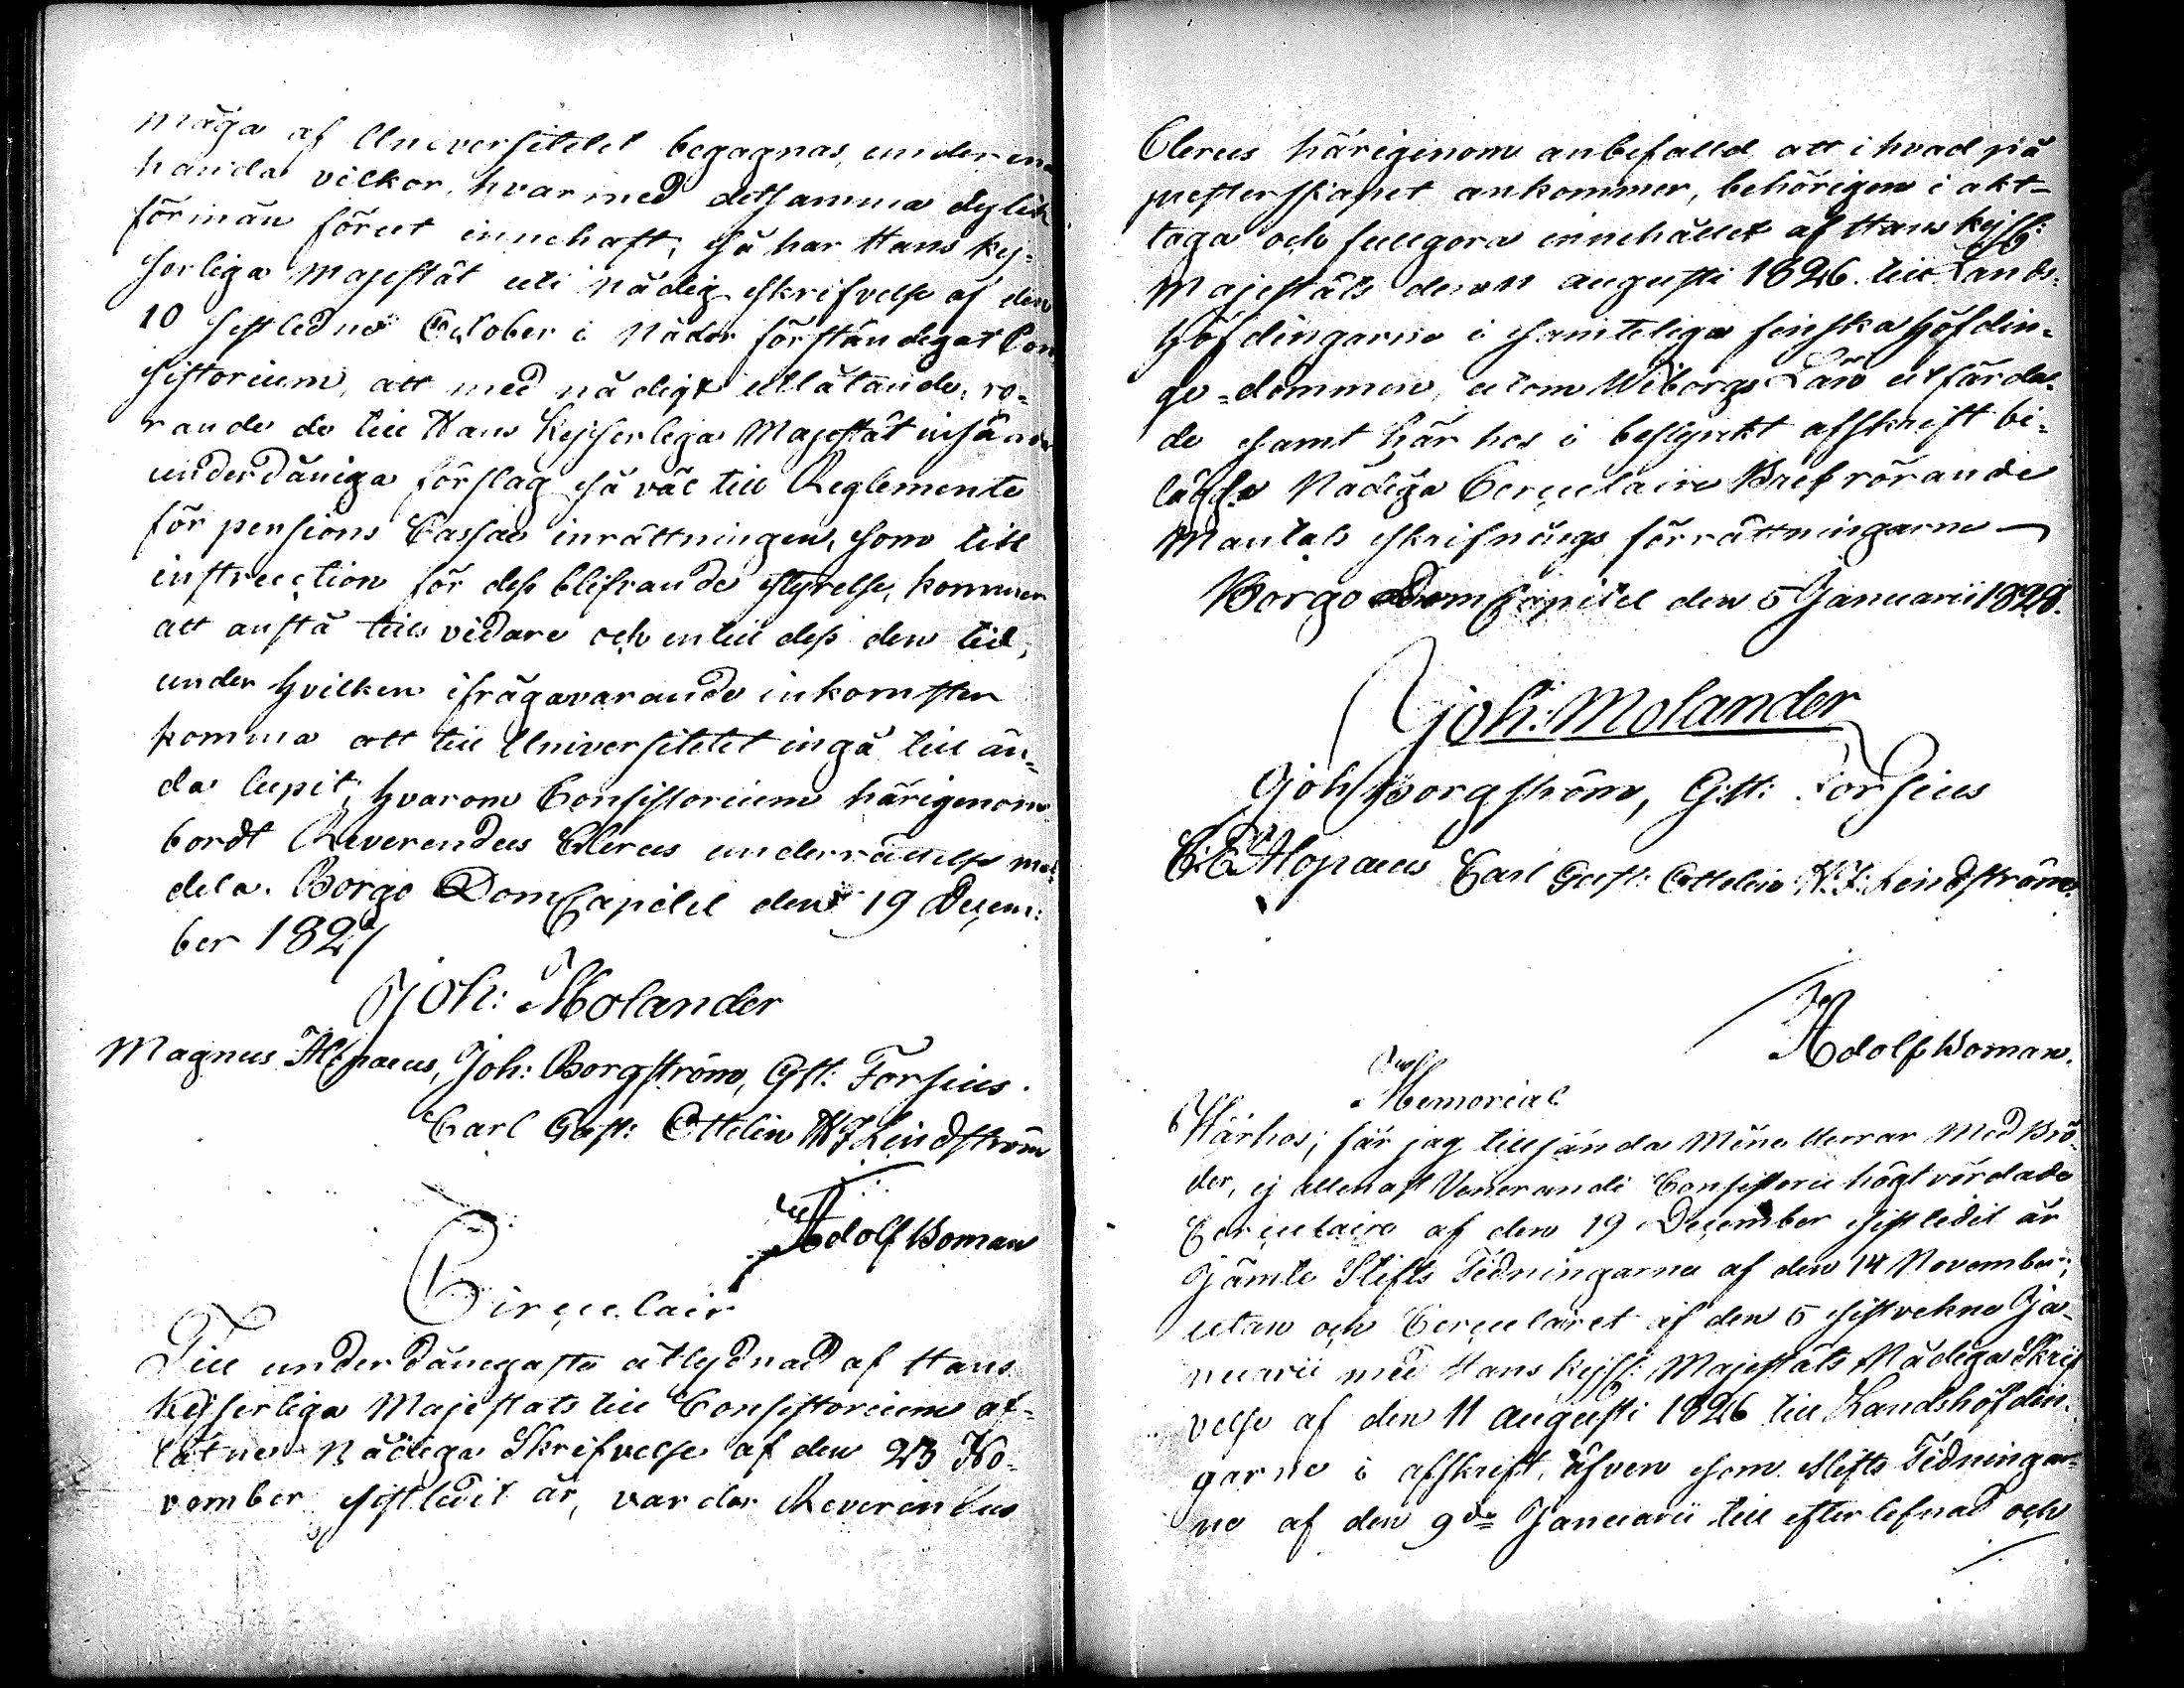 måga af Universitetet begagnas, under
handa vilkor, hvarmed detsamma dylik
förmån förut innehaft; så har Hans Kej-
serliga Majestät uti nådig skrifvelse af den
10 sistledne October i Nåder förständigat Con
sistorium, att med nådigt utlåtande, rö-
rande de till Hans Kejserliga Majestät insände
underdåniga förslag så väl till Reglemente
för pensions Cassae inrättningen, som till
instruction för dess blifvande styrelse, kommer
att anstå tills vidare och intill dess den tid,
under hvilken ifrågavarande inkomster
komma att till Universitetet ingå till än-
da lupit; hvarom Consistorium härigenom
bordt Reverendus Clerus underrättelse med
dela. Borgo DomCapitel den 19 Decem-
ber 1827
Joh: Molander
Magnus Alopaeus, Joh: Borgström, Gst: Forsius.
Carl Gust: Ottelin N J Lindström
Adolf Boman
Circulair
Till underdånigaste åtlydnad af Hans
Kejserliga Majestäts till Consistorium af-
låtne Nådiga Skrifvelse af den 23 No-
vember sistledit år, varder Reverendus
Clerus härigenom anbefalld att i hvad på
presterskapet ankommer, behörigen i akt-
taga och fullgöra innehållet af Hans Kejss:
Majestäts den 11 augusti 1826 till Lands-
höfdingarne i samteliga finska höfdin-
ge-dömmen, utom Wiborgs Län utfärda-
de samt här hos i bestyrkt afskrift bi-
lagda Nådiga Circulaire Bref rörande
Mantals skrifnings förrättningarne —
Borgo DomCapitel den 5 Januarii 1828.
Joh: Molander
Joh Borgström, Gst: Forsius
Alopaeus Carl Gust: Ottelin N: J: Lindström.
Adolf Boman.
Memorial
Härhos, får jag tillsända Mine Herrar Med Brö-
der, ej allenast Venerandi Consistorii högt vördade
Circulaire af den 19 December sistledit år
Jämte Stifts Tidningarne af den 14 November;
utan och Circulairet af den 5 sistvekne Ja-
nuarii med Hans Kejss: Majestäts Nådiga Skrif
velse af den 11 augusti 1826 till Landshöfdin-
garne i afskrift, äfven som Stifts Tidningar-
ne af den 9de Januarii till efterlefnad och